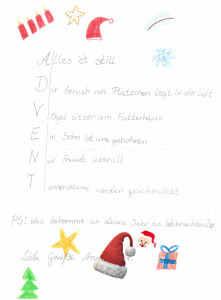 Alles ist still
Der Geruch von Plätzchen liegt in der Luft
Vögel sitzen am Futterhaus
Ein Sohn ist uns gebohren
Nur Freude überall
Tannenbäume werden geschmückt
PS: Was bekomme ich dieses Jahr zu Weihnachten?
Liebe Grüße An